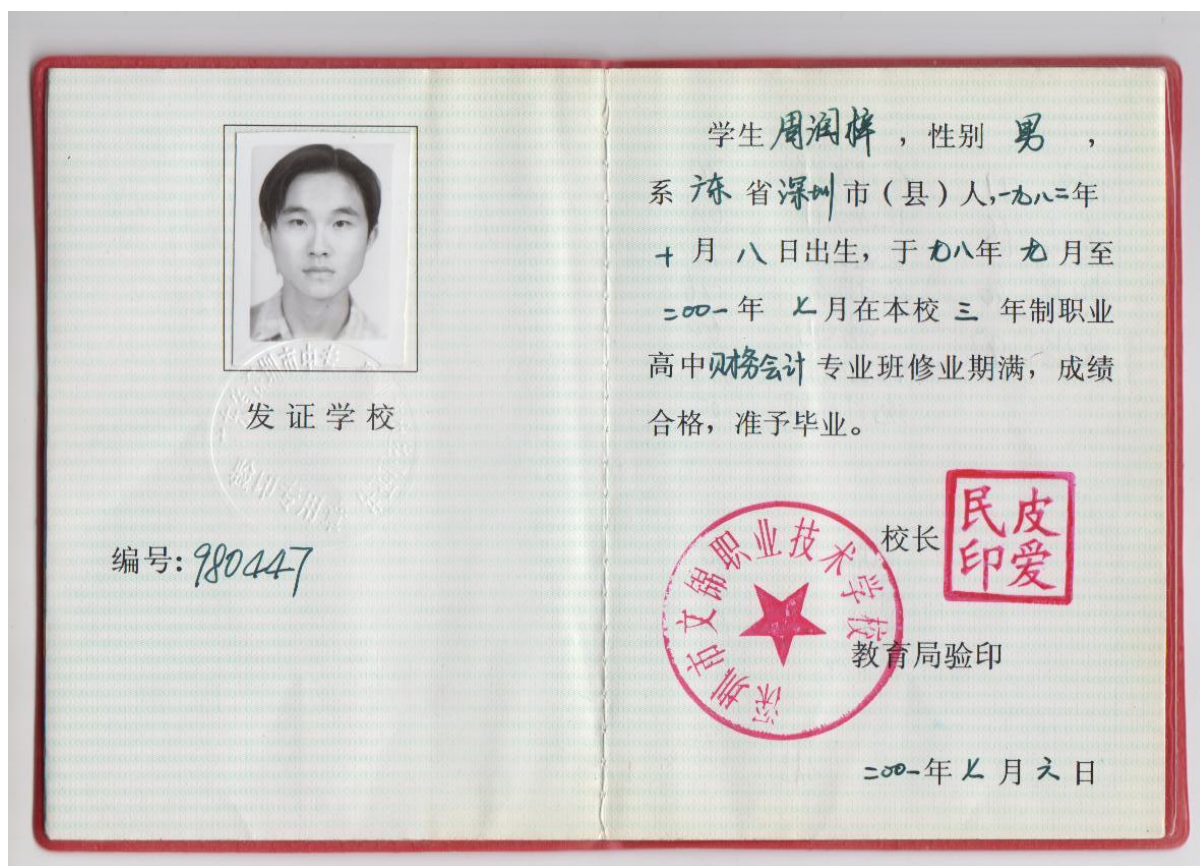 发证学校
编号:980447
学生周润梓,性别 男 ,
系 广东 省深圳市(县)人,一九八二年
十 月 八 日出生,于九八年 九 月至
二〇〇一年 七月在本校 三 年制职业
高中财务会计 专业班修业期满,成绩
合格,准予毕业。
校长
皮爱
民印
深圳市文锦职业技术学校
教育局验印
二〇〇一年七月六日